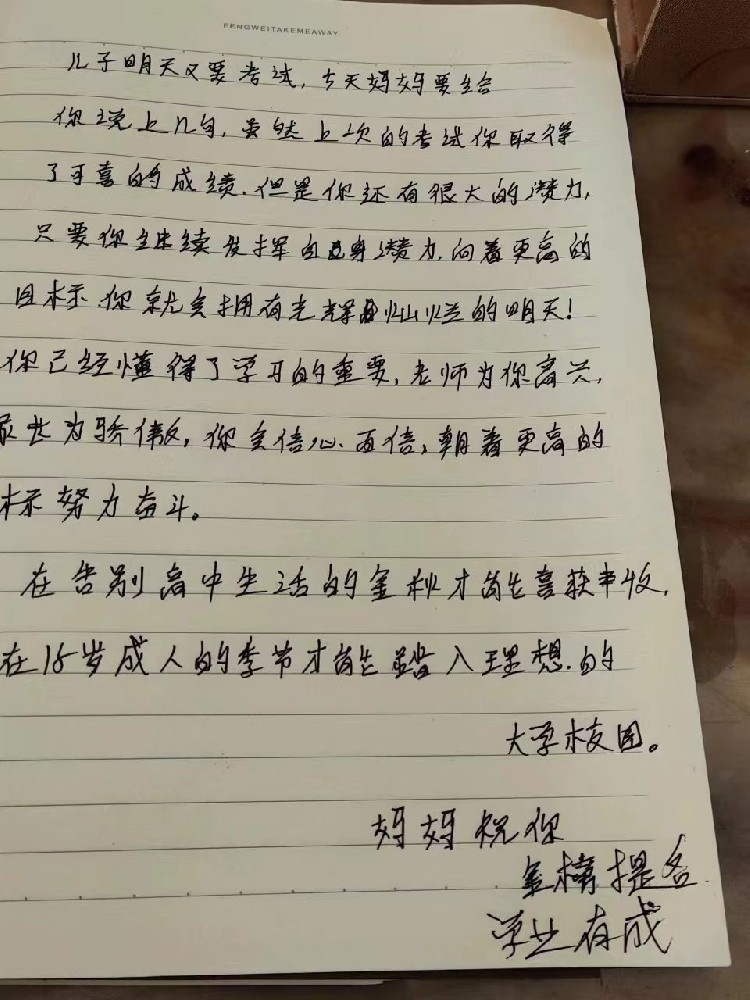 FENGWEITAKEMEAWAY
儿子明天又要考试,今天妈妈要给
你说上几句,虽然上次的考试你取得
了可喜的成绩.但是你还有很大的潜力,
只要你继续发挥自身潜力.向着更高的
目标你就会拥有光辉灿烂的明天!
你已经懂得了学习的重要,老师为你高兴,
此为骄傲,你会信心百倍,朝着更高的
标努力奋斗。
在告别高中生活的金秋才能喜获丰收,
在18岁成人的季节才能踏入理想.的
大学校园。
妈妈祝你
金榜提名
学业有成